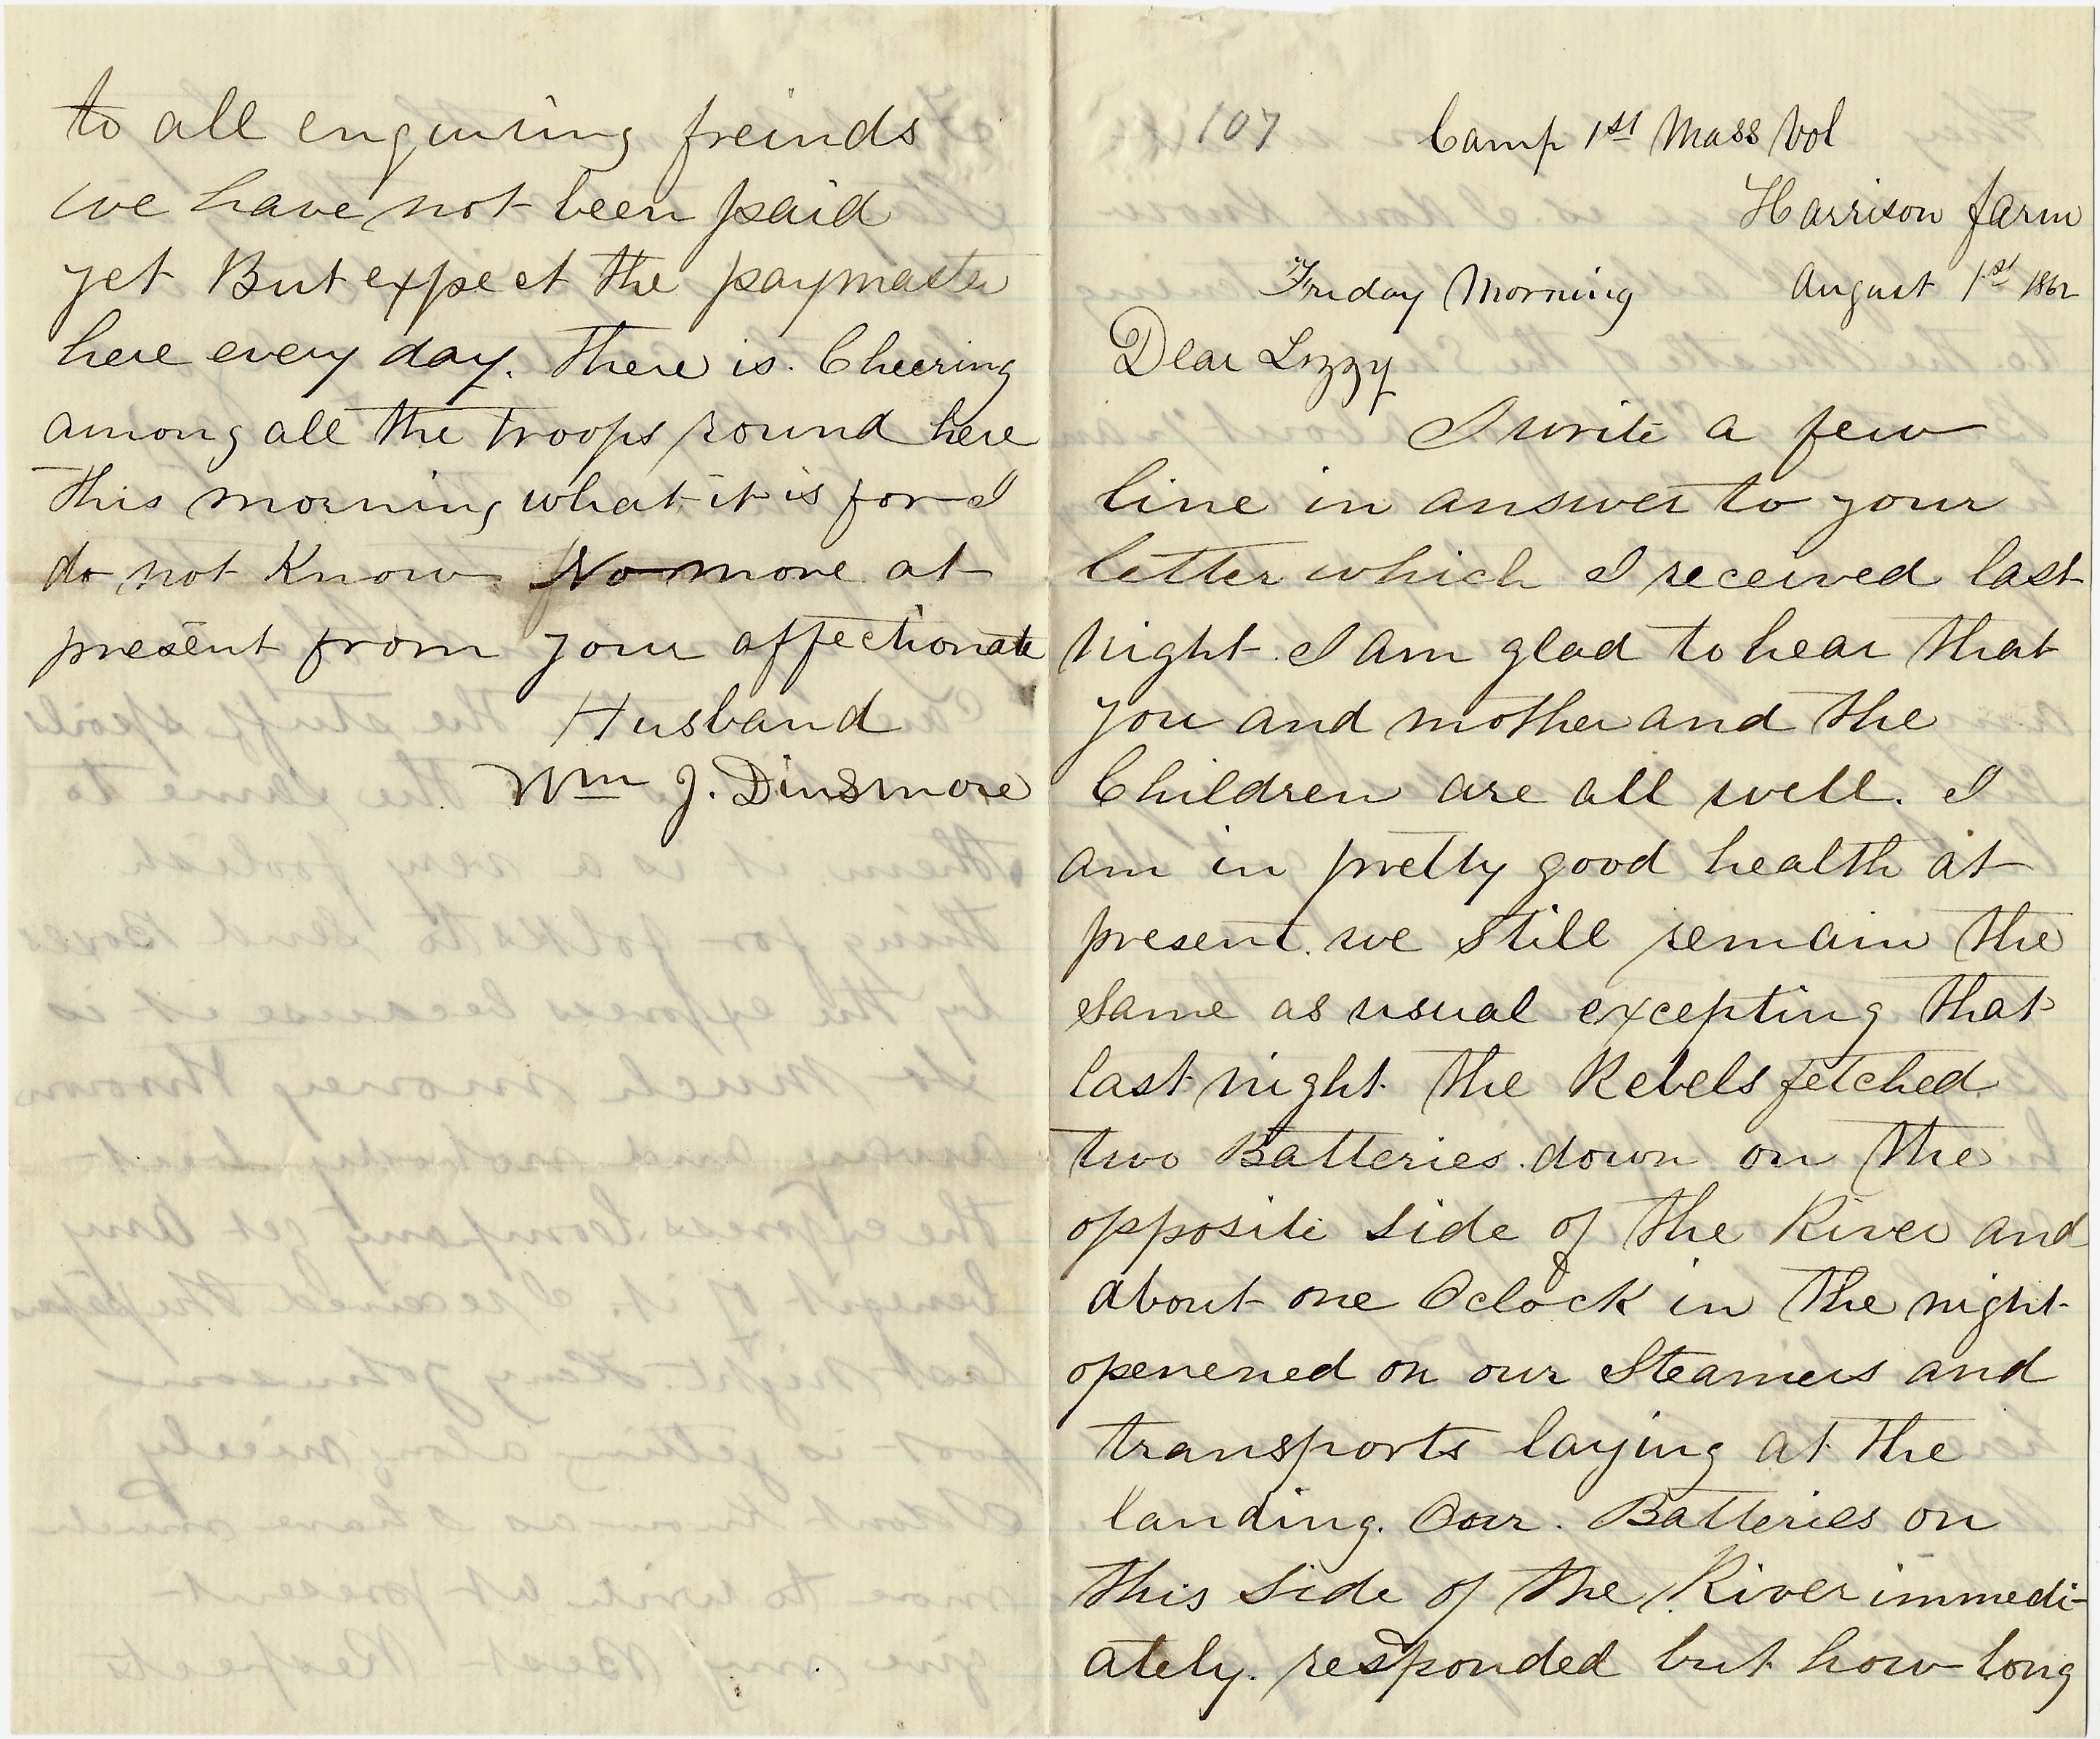 107
Camp 1st Mass Vol
Harrison farm
Friday Morning August 1st 1862
Dear Lizzy
I write a few
line in answer to your
letter which I received last
night. I am glad to hear that
you and mother and the
Children are all well. I
am in pretty good health at
present. we still remain the
same as usual excepting that
last night the Rebels fetched
two Batteries down on the
opposite side of the River and
about one Oclock in the night
openened on our Steamers and
transports laying at the
landing. Our Batteries on
this side of the River immedi-
ately. responded but how long
to all enquiring freinds
we have not been paid
yet But expect the paymaster
here every day. there is. Cheering
among all the troops round here
this morning what it is for I
do not Know No more at
present from your affectionate
Husband
Wm J. Dinsmore